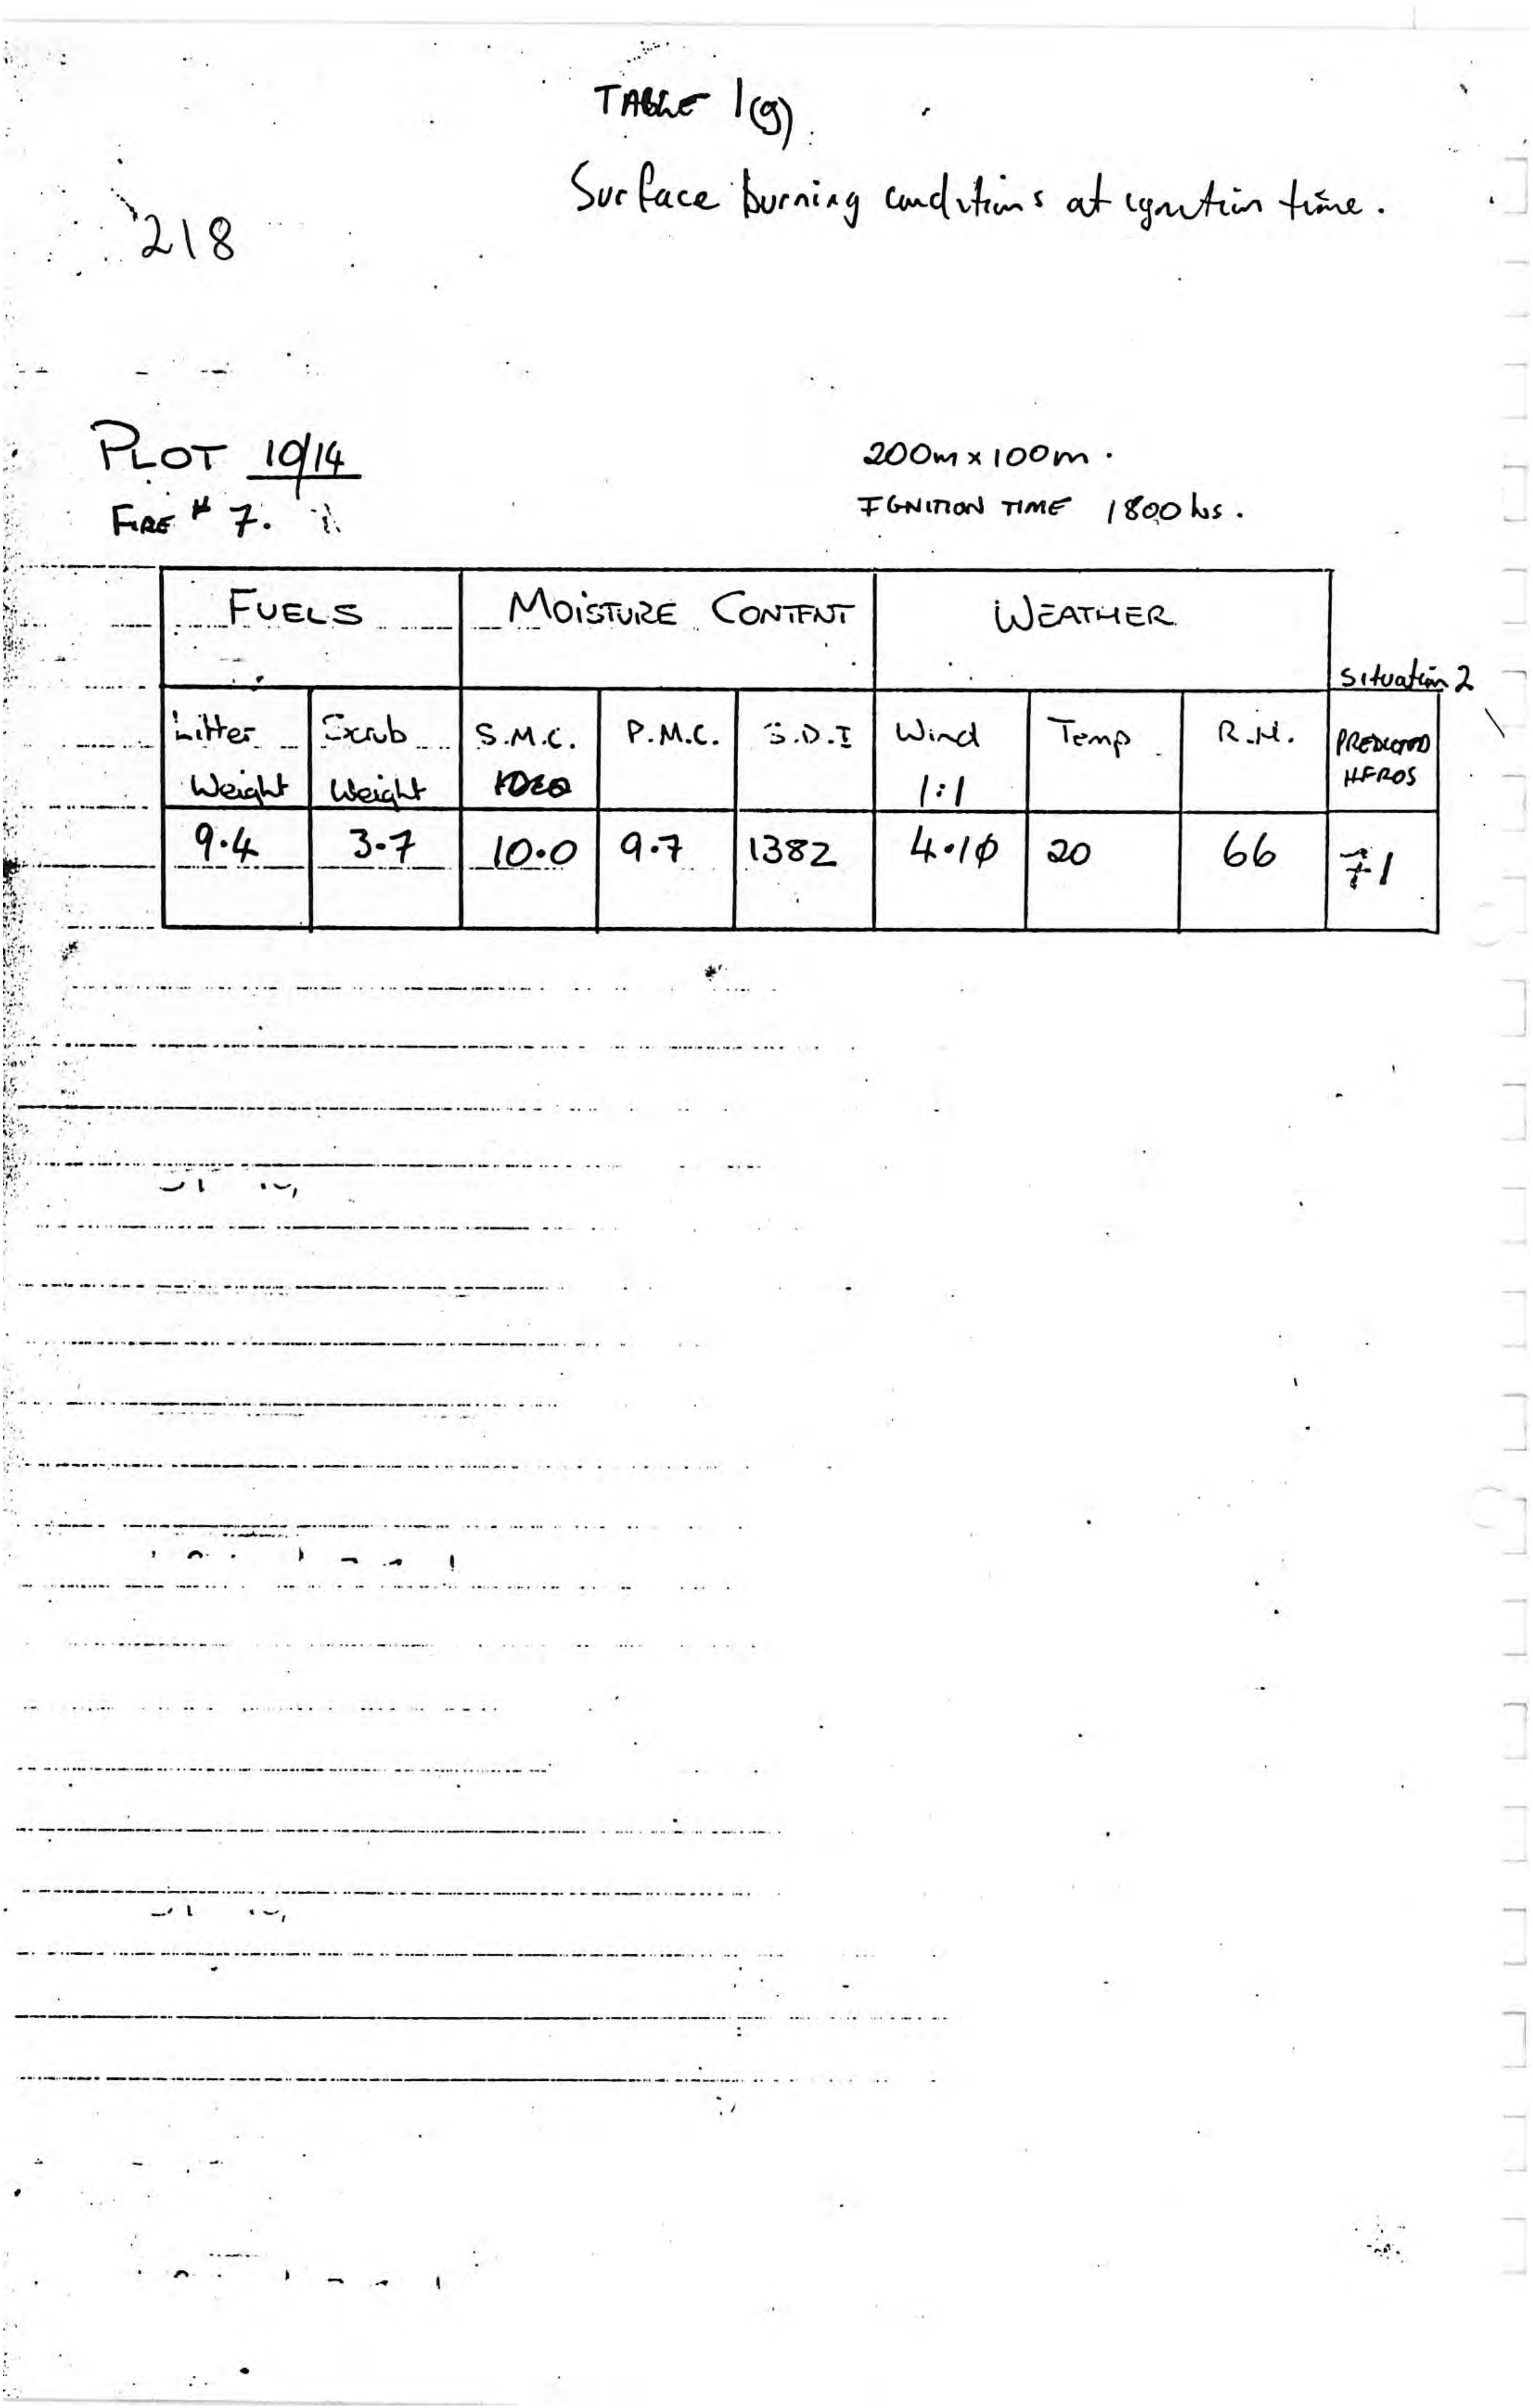 TABLE 1(g)
Surface burning conditions at ignition time.
218
PLOT 10/14
200m x 100m.
FIRE # 7.
IGNITION TIME 1800 hrs.
FUELS MOISTURE CONTENT WEATHER
Situation 2
Litter Weight Scrub Weight S.M.C. P.M.C. S.D.I Wind 1:1 Temp R.H. PREDICTED HFROS
9.4 3.7 10.0 9.7 1382 4.10 20 66 71